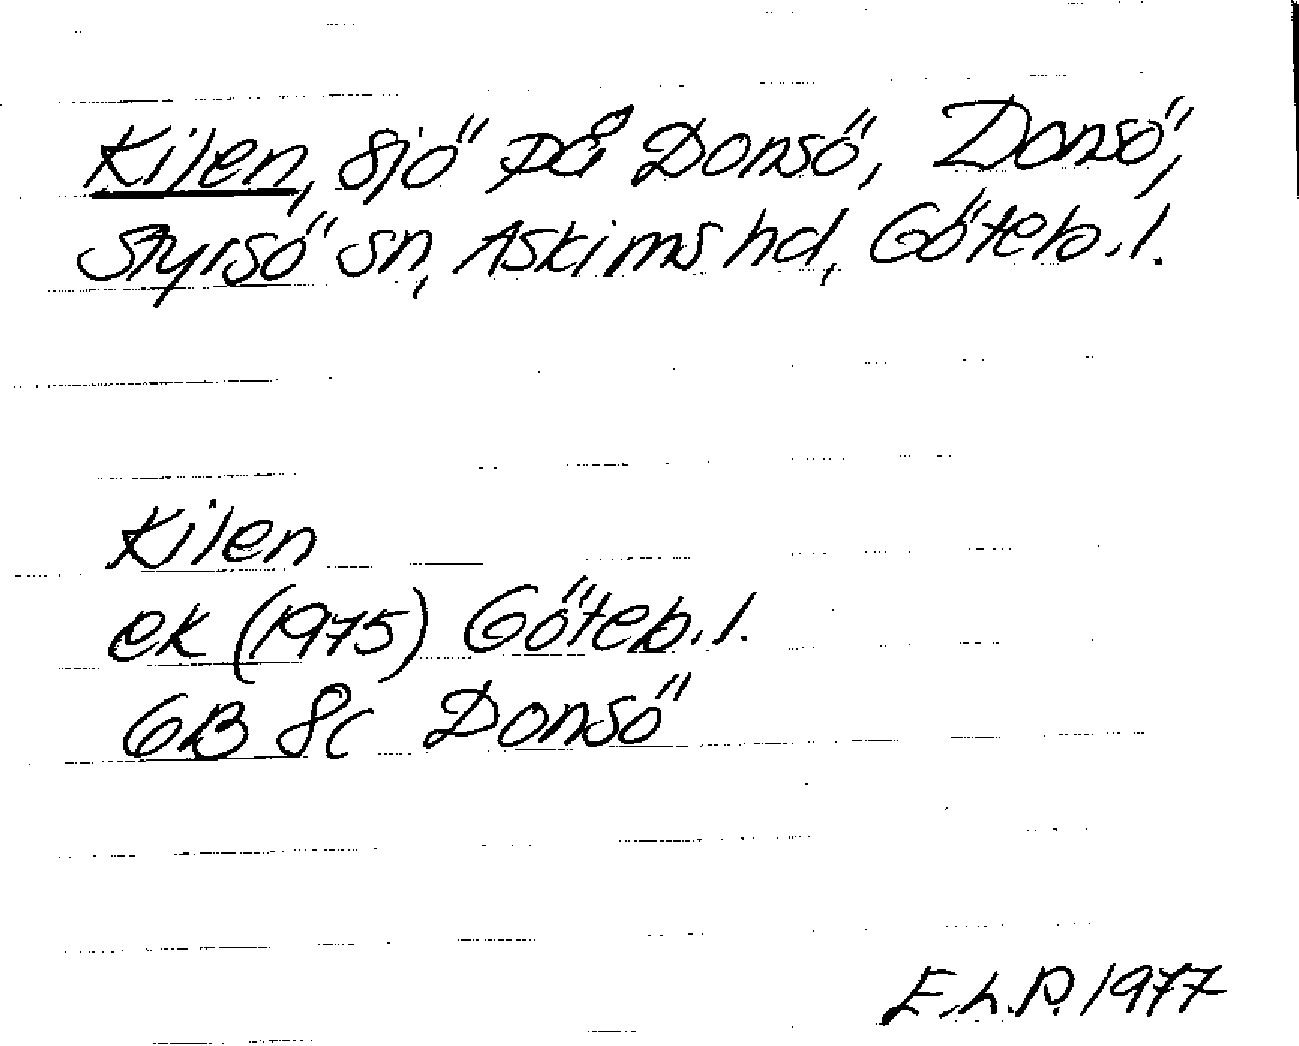 Kilen, sjö på Donsö, Donsö,
Styrsö sn, Askims hd, Göteb. l.
Kilen
ek (1975) Göteb. l.
6B 8c Donsö
E.L.P. 1977